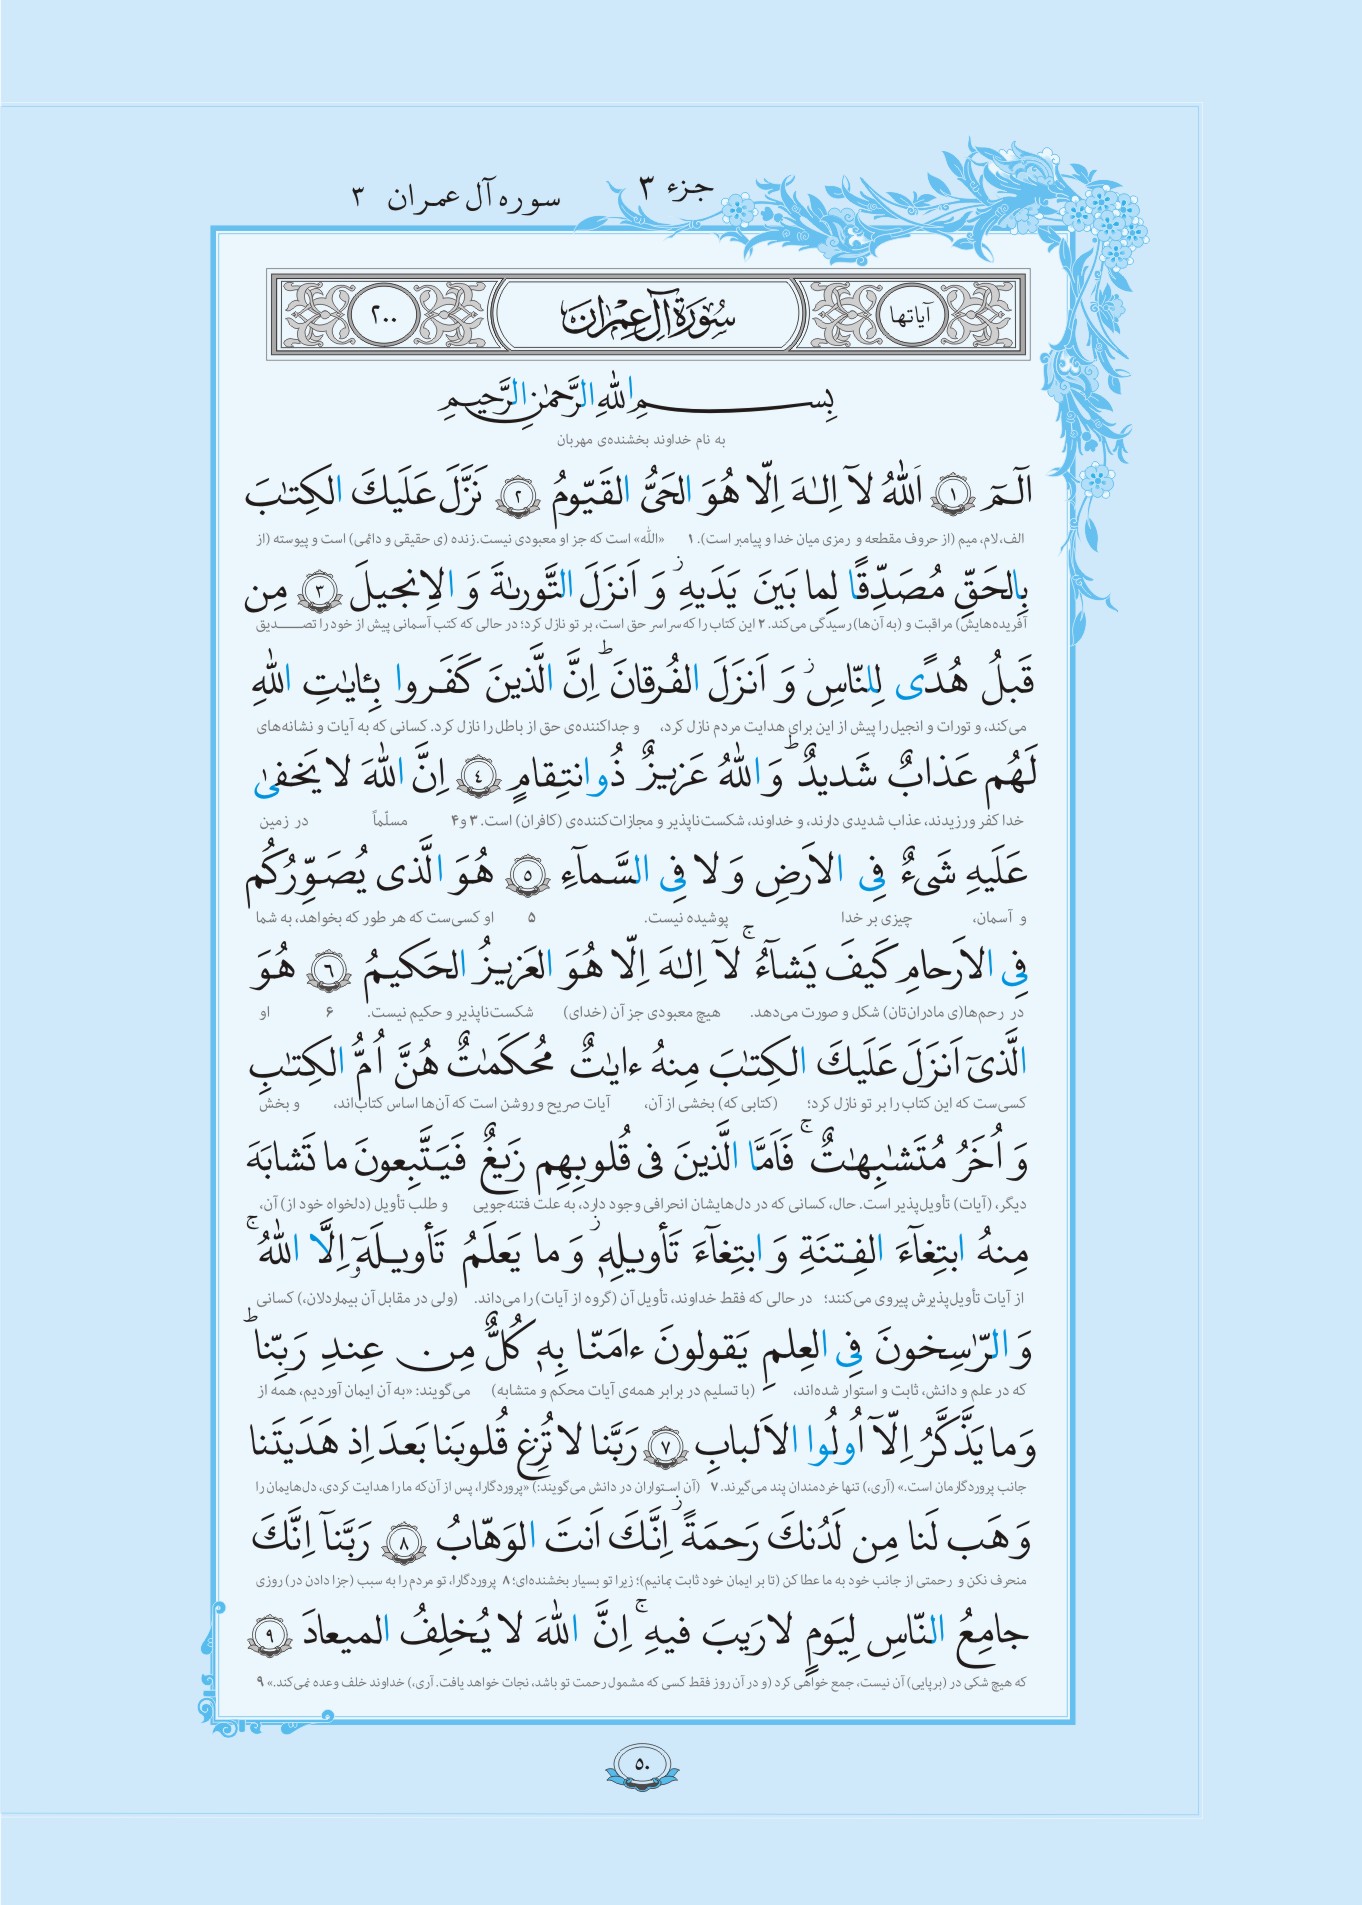 جزء ۳
سوره آل عمران ۳
آیاتها
سُورَةُ آلِ عِمْرَان
۲۰۰
بِسمِ اللّٰهِ الرَّحمٰنِ الرَّحيمِ
به نام خداوند بخشنده‌ی مهربان
الٓـمٓ ١ اَللّٰهُ لاۤ اِلٰـهَ اِلّا هُوَ الحَىُّ القَيّومُ ٢ نَزَّلَ عَلَيكَ الكِتٰبَ
الف، لام، میم (از حروف مقطعه و رمزی میان خدا و پیامبر است). ۱ «اللّه» است که جز او معبودی نیست. زنده (ی حقیقی و دائمی) است و پیوسته (از
بِالحَقِّ مُصَدِّقًا لِما بَينَ يَدَيهِ ز وَ اَنزَلَ التَّورىٰةَ وَ الاِنجيلَ ٣ مِن
آفریده‌هایش) مراقبت و (به آن‌ها) رسیدگی می‌کند. ۲ این کتاب را که سراسر حق است، بر تو نازل کرد؛ در حالی که کتب آسمانی پیش از خود را تصـــدیق
قَبلُ هُدًى لِلنّاسِ ز وَ اَنزَلَ الفُرقانَ ط اِنَّ الَّذينَ كَفَروا بِـٔايٰتِ اللّٰهِ
می‌کند، و تورات و انجیل را پیش از این برای هدایت مردم نازل کرد، و جداکننده‌ی حق از باطل را نازل کرد. کسانی که به آیات و نشانه‌های
لَهُم عَذابٌ شَديدٌ ط وَ اللّٰهُ عَزيزٌ ذُوانتِقامٍ ٤ اِنَّ اللّٰهَ لا يَخفىٰ
خدا کفر ورزیدند، عذاب شدیدی دارند، و خداوند، شکست‌ناپذیر و مجازات‌کننده‌ی (کافران) است. ۳ و ۴ مسلّماً در زمین
عَلَيهِ شَىءٌ فِى الاَرضِ وَ لا فِى السَّماۤءِ ٥ هُوَ الَّذى يُصَوِّرُكُم
و آسمان، چیزی بر خدا پوشیده نیست. ۵ او کسی‌ست که هر طور که بخواهد، به شما
فِى الاَرحامِ كَيفَ يَشاۤءُ ج لاۤ اِلٰهَ اِلّا هُوَ العَزيزُ الحَكيمُ ٦ هُوَ
در رحم‌ها(ی مادران‌تان) شکل و صورت می‌دهد. هیچ معبودی جز آن (خدای) شکست‌ناپذیر و حکیم نیست. ۶ او
الَّذىۤ اَنزَلَ عَلَيكَ الكِتٰبَ مِنهُ ءايٰتٌ مُحكَمٰتٌ هُنَّ اُمُّ الكِتٰبِ
کسی‌ست که این کتاب را بر تو نازل کرد؛ (کتابی که) بخشی از آن، آیات صریح و روشن است که آن‌ها اساس کتاب‌اند، و بخش
وَ اُخَرُ مُتَشٰبِهٰتٌ ج فَاَمَّا الَّذينَ فى قُلوبِهِم زَيغٌ فَيَتَّبِعونَ ما تَشابَهَ
دیگر، (آیات) تأویل‌پذیر است. حال، کسانی که در دل‌هایشان انحرافی وجود دارد، به علت فتنه‌جویی و طلب تأویل (دلخواه خود از) آن،
مِنهُ ابتِغاۤءَ الفِتنَةِ وَ ابتِغاۤءَ تَأويلِهٖ ز وَ ما يَعلَمُ تَأويلَهٗۤ اِلَّا اللّٰهُ ج
از آیات تأویل‌پذیرش پیروی می‌کنند؛ در حالی که فقط خداوند، تأویل آن (گروه از آیات) را می‌داند. (ولی در مقابل آن بیماردلان،) کسانی
وَ الرّٰسِخونَ فِى العِلمِ يَقولونَ ءامَنّا بِهٖ كُلٌّ مِن عِندِ رَبِّنا ط
که در علم و دانش، ثابت و استوار شده‌اند، (با تسلیم در برابر همه‌ی آیات محکم و متشابه) می‌گویند: «به آن ایمان آوردیم، همه از
وَ ما يَذَّكَّرُ اِلّاۤ اُولُوا الاَلبابِ ٧ رَبَّنا لا تُزِغ قُلوبَنا بَعدَ اِذ هَدَيتَنا
جانب پروردگارمان است.» (آری،) تنها خردمندان پند می‌گیرند. ۷ (آن استواران در دانش می‌گویند:) «پروردگارا، پس از آن‌که ما را هدایت کردی، دل‌هایمان را
وَ هَب لَنا مِن لَدُنكَ رَحمَةً ز اِنَّكَ اَنتَ الوَهّابُ ٨ رَبَّناۤ اِنَّكَ
منحرف نکن و رحمتی از جانب خود به ما عطا کن (تا بر ایمان خود ثابت بمانیم)؛ زیرا تو بسیار بخشنده‌ای؛ ۸ پروردگارا، تو مردم را به سبب (جزا دادن در) روزی
جامِعُ النّاسِ لِيَومٍ لا رَيبَ فيهِ ج اِنَّ اللّٰهَ لا يُخلِفُ الميعادَ ٩
که هیچ شکی در (برپایی) آن نیست، جمع خواهی کرد (و در آن روز فقط کسی که مشمول رحمت تو باشد، نجات خواهد یافت. آری،) خداوند خلف وعده نمی‌کند.» ۹
۵۰